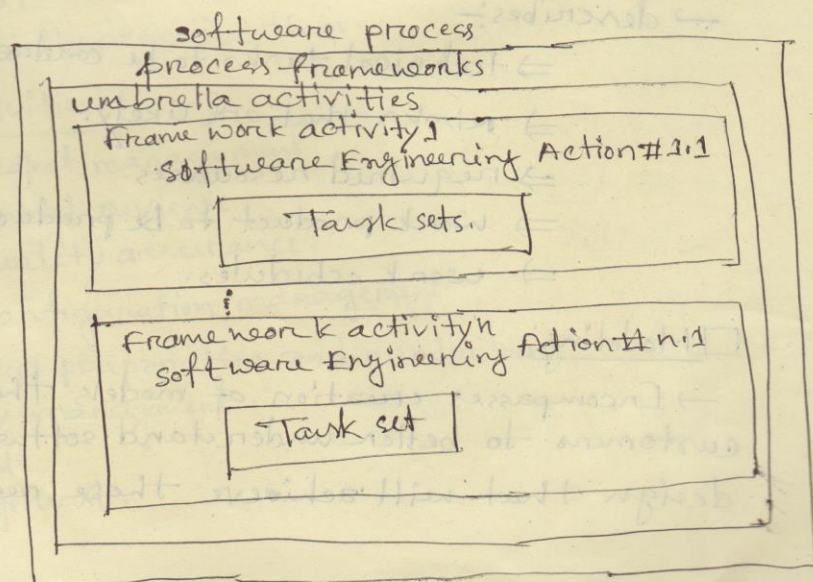 software process
process frameworks
umbrella activities
Framework activity 1
software Engineering Action # 1.1
Task sets.
Framework activity n
software Engineering Action # n.1
Task set